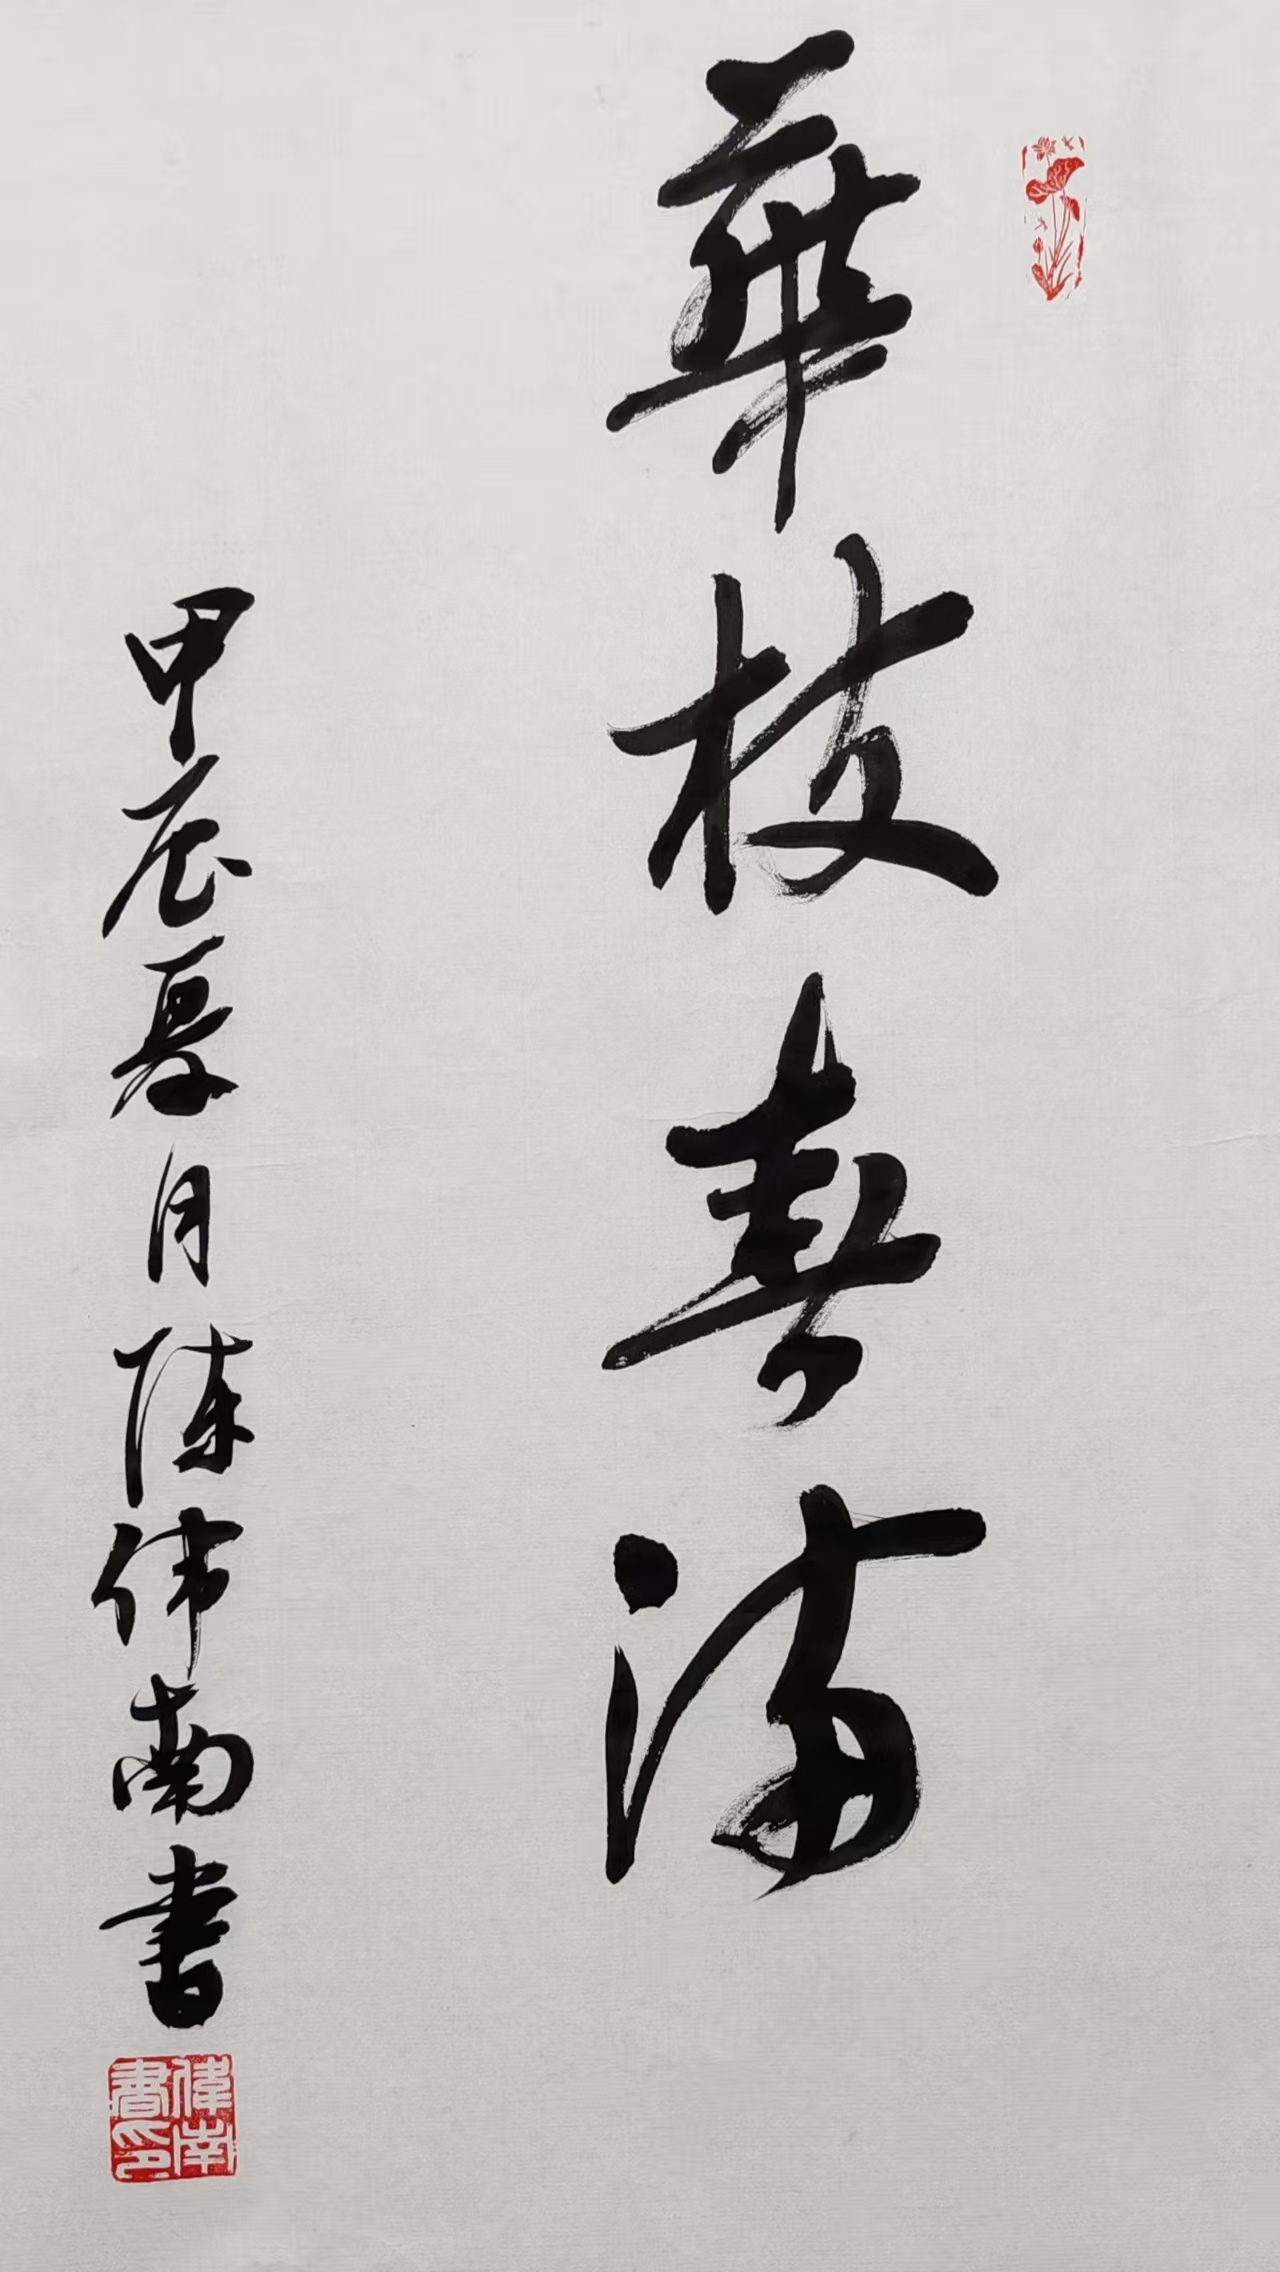 華枝春満
甲辰夏月陳伟南書
偉南書印